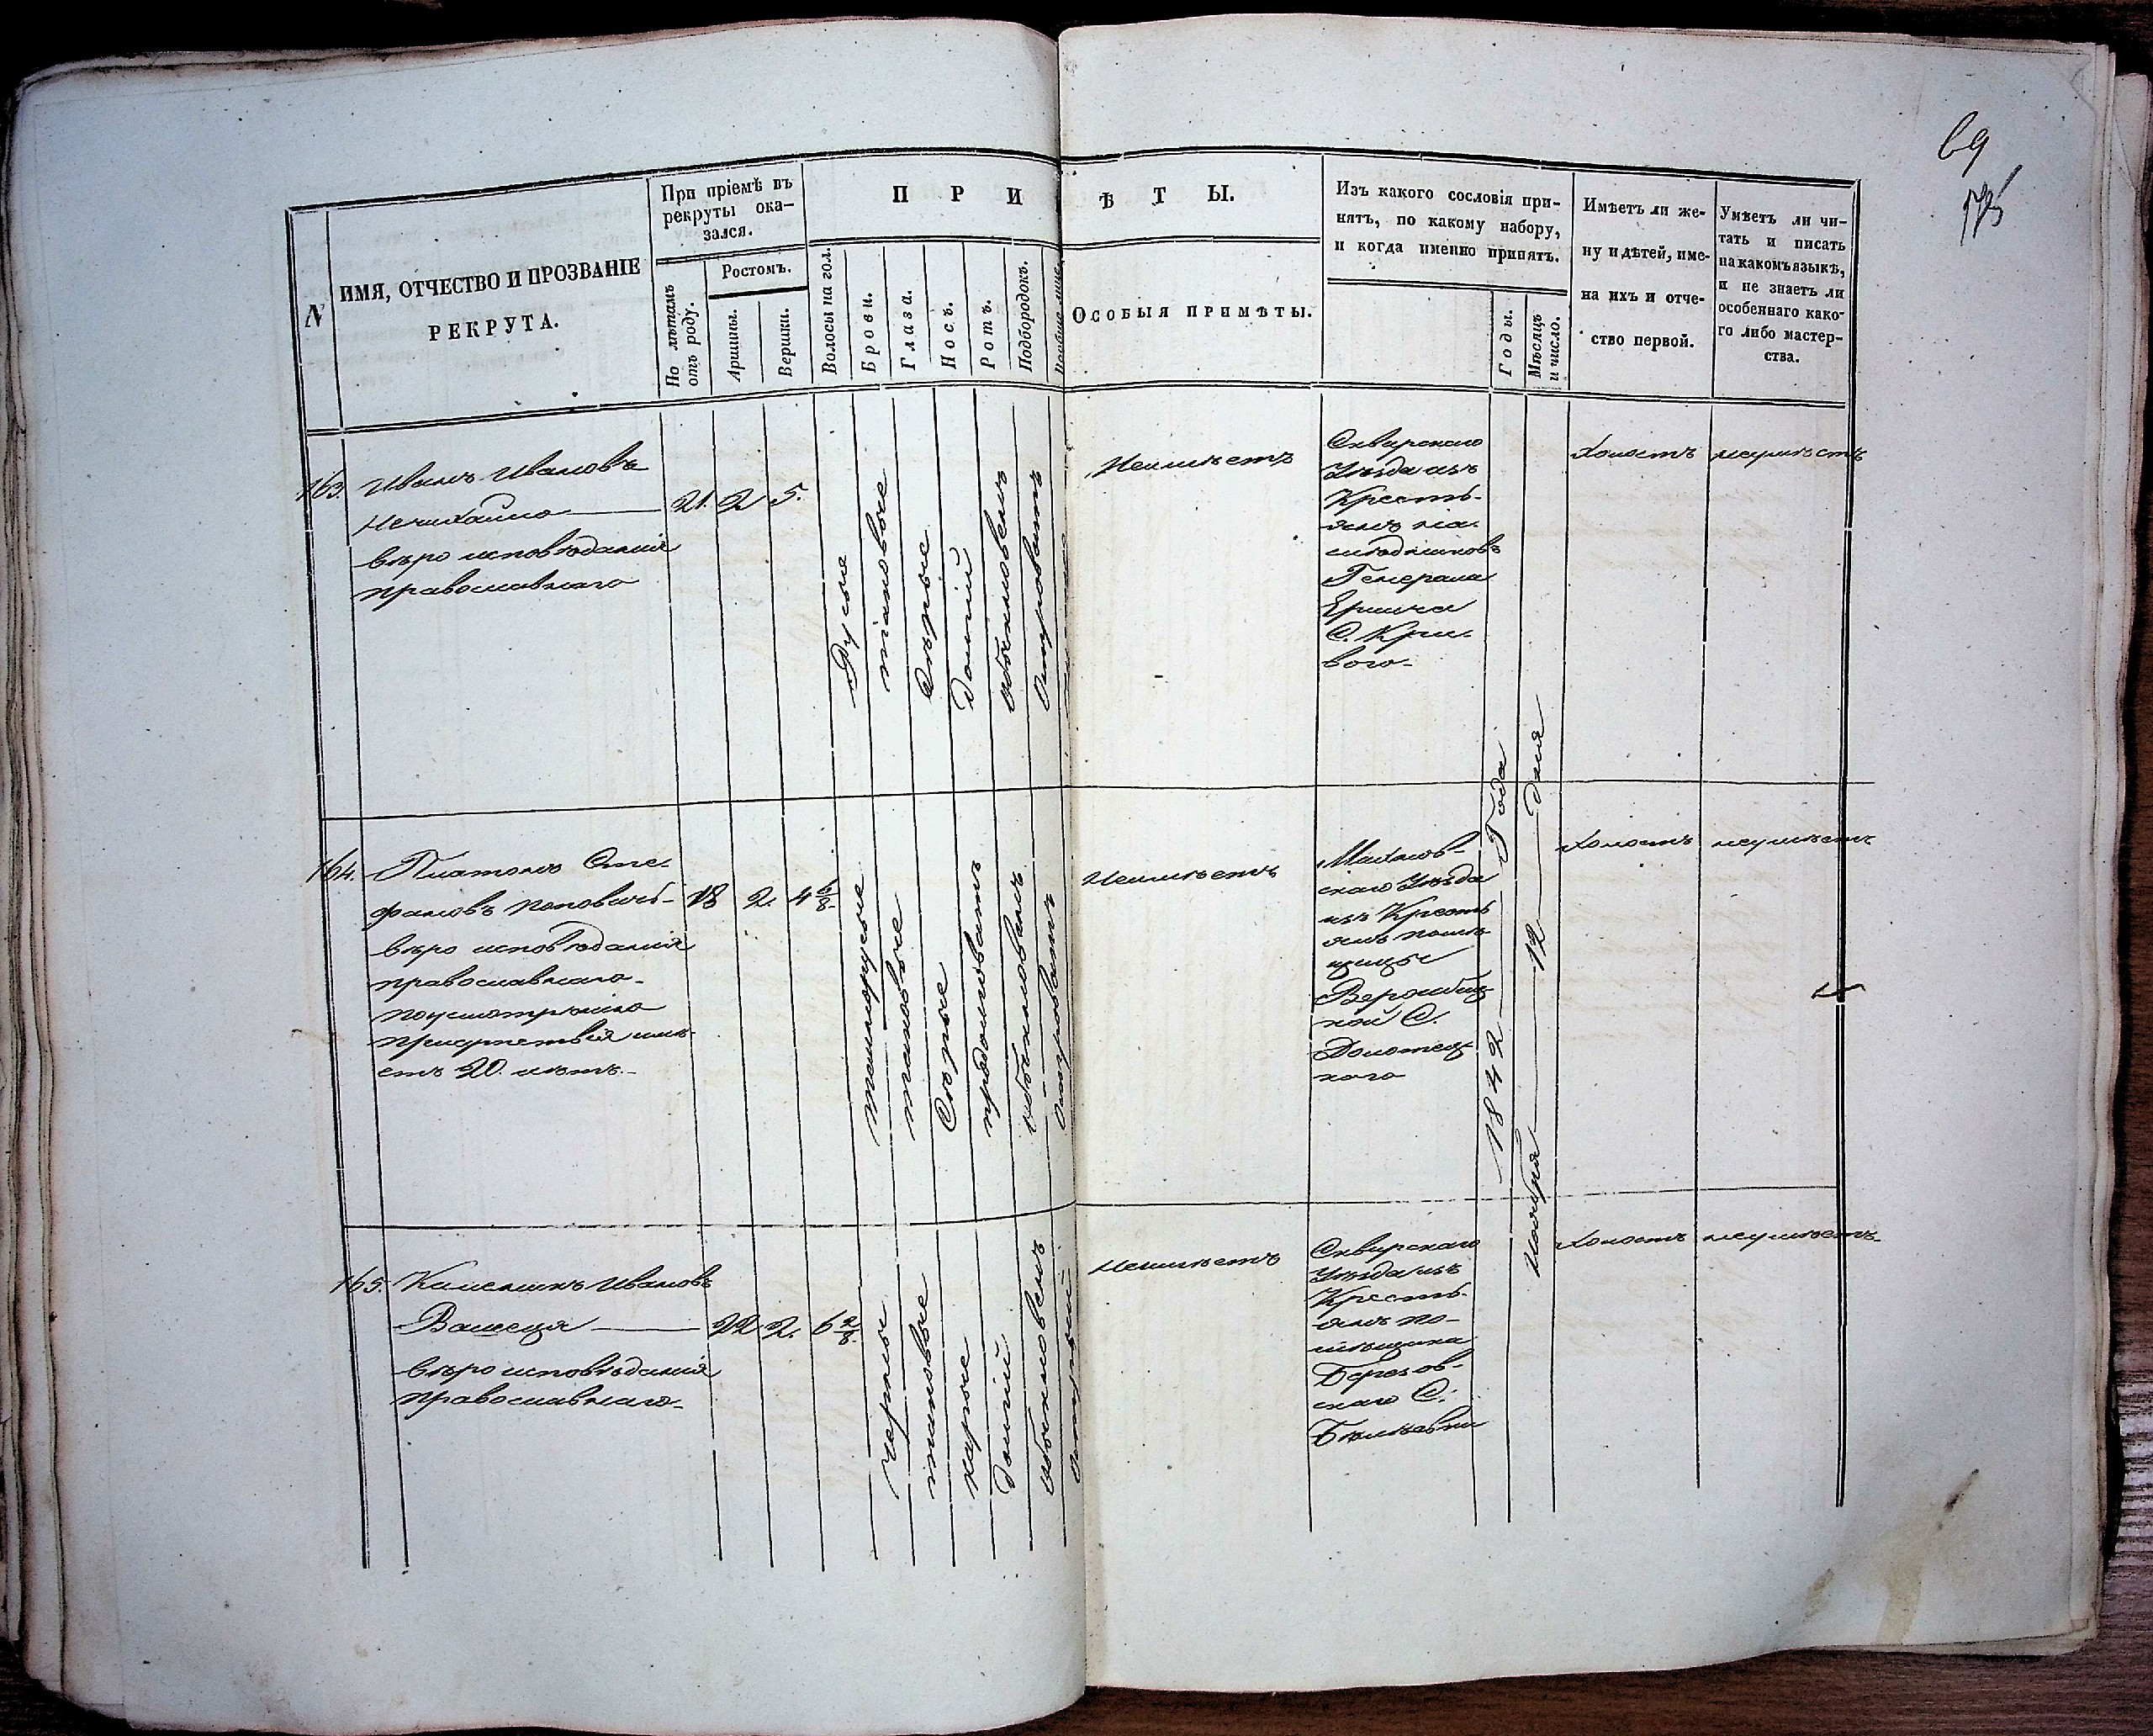 69
N
ИМЯ, ОТЧЕСТВО И ПРОЗВАНІЕ
РЕКРУТА.
При пріемѣ въ
рекруты ока-
зался.
По лѣтамъ
отъ роду.
Ростомъ.
Аршины.
Вершки.
ПРИМѢТЫ.
Волосы на гол.
Брови.
Глаза.
Носъ.
Ротъ.
Подбородокъ.
ОСОБЫЯ ПРИМѢТЫ.
Изъ какого сословія при-
нятъ, по какому набору,
и когда именно принятъ.
Годы.
Мѣсяцъ
и число.
Имѣетъ ли же-
ну и дѣтей, име-
на ихъ и отче-
ство первой.
Умѣетъ ли чи-
тать и писать
на какомъ языкѣ,
и не знаетъ ли
особеннаго како-
го либо мастер-
ства.
163. Иванъ Ивановъ
Нечихайло
вѣро исповѣданія
православнаго
21. 2 5.
Русые
таковые
Сѣрые
долгій
обыкновенъ
Островатъ
Неимѣетъ
Сквирскаго
Уѣзда изъ
Кресть-
янъ на-
слѣдниковъ
Генерала
С. Кри-
вого
Холостъ
неумѣетъ
164. Платонъ Сте-
фановъ Поповичъ
вѣро исповѣданія
православнаго
поусмотрѣнію
присутствія имѣ-
етъ 20. лѣтъ.
18 2. 4 6/8
темнорусые
таковые
Сѣрые
продолговатъ
обыкновенъ
Островатъ
Неимѣетъ
Махнов-
скаго Уѣзда
изъ Кресть
янъ помѣ-
щицы
кой С.
1842 Года
Ноября 12 дня
Холостъ
неумѣетъ
165. Калениkъ Ивановъ
вѣро исповѣданія
православнаго
22. 2. 6 2/8
черные
таковые
карые
долгій
обыкновенъ
Неимѣетъ
Сквирскаго
Уѣзда изъ
Кресть-
янъ по-
мѣщика
Березов-
скаго С.
Холостъ
неумѣетъ